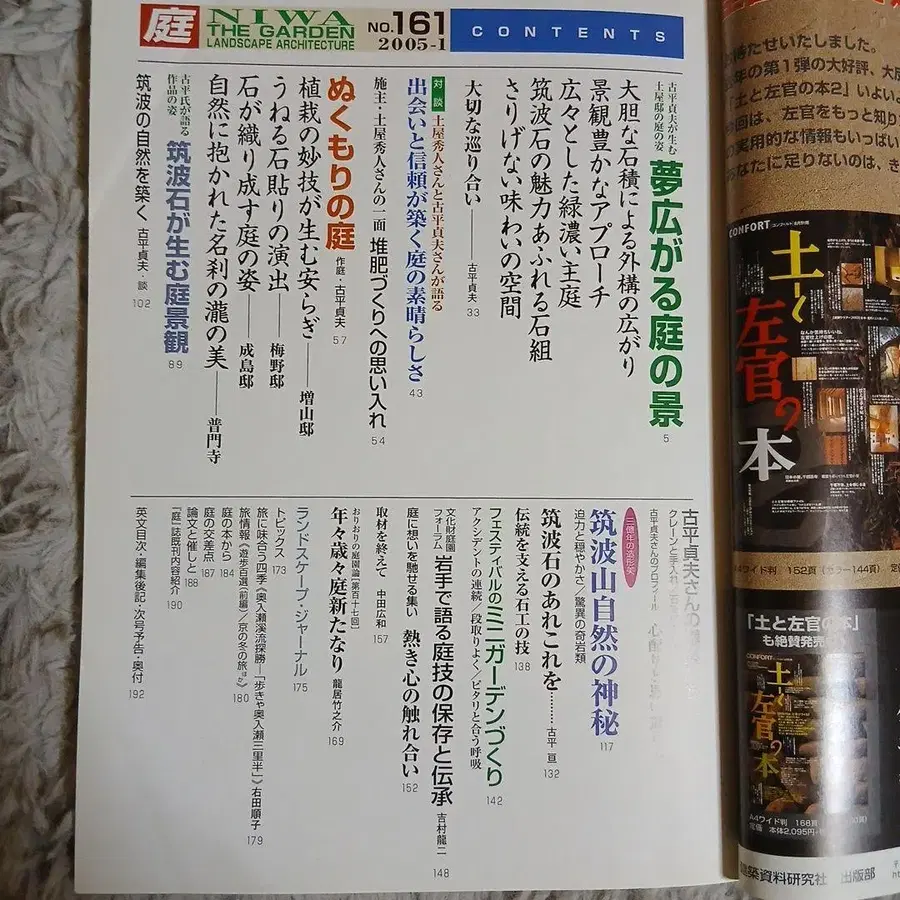 庭
NIWA
THE GARDEN
LANDSCAPE ARCHITECTURE
NO.161
2005-1
CONTENTS
古平貞夫が生む
土屋邸の庭の姿
夢広がる庭の景
5
大胆な石積による外構の広がり
景観豊かなアプローチ
広々とした緑濃い主庭
筑波石の魅力あふれる石組
さりげない味わいの空間
大切な巡り合い——古平貞夫 33
対談 土屋秀人さんと古平貞夫さんが語る
出会いと信頼が築く庭の素晴らしさ 43
施主・土屋秀人さんの一面 堆肥づくりへの思い入れ 54
ぬくもりの庭 作庭・古平貞夫 57
植栽の妙技が生む安らぎ——増山邸
うねる石貼りの演出——梅野邸
石が織り成す庭の姿——成島邸
自然に抱かれた名刹の瀧の美——普門寺
古平氏が語る
作品の姿
筑波石が生む庭景観 89
筑波の自然を築く 古平貞夫・談 102
古平貞夫さんの
クレーンと手入れ
古平貞夫さんのプロフィール
三億年の造形美
筑波山自然の神秘 117
迫力と穏やかさ/驚異の奇岩類
筑波石のあれこれを………古平 亘 132
伝統を支える石工の技 138
フェスティバルのミニガーデンづくり 142
アクシデントの連続/段取りよく/ピタリと合う呼吸
文化財庭園
フォーラム
岩手で語る庭技の保存と伝承 吉村龍二 148
庭に想いを馳せる集い 熱き心の触れ合い 152
取材を終えて 中田広和 157
おりおりの庭園論[第百十七回]
年々歳々庭新たなり 龍居竹之介 169
ランドスケープ・ジャーナル 175
トピックス 173
旅に味合う四季〈奥入瀬渓流探勝—「歩きゃ奥入瀬三里半」〉右田順子 179
旅情報《遊歩百選〔前編〕/京の冬の旅ほか》 180
庭の本から 184
庭の交差点 187
論文と催しと 188
『庭』誌既刊内容紹介 190
英文目次・編集後記・次号予告・奥付 192
待たせいたしました。
年の第1弾の大好評、大反
「土と左官の本2」いよいよ
回は、左官をもっと知り
の実用的な情報もいっぱい
あなたに足りないのは、き
CONFORT
土と
左官の
本
4ワイド判 152頁(カラー144頁) 定
「土と左官の本」
も絶賛発売
CONFORT
土と
左官の
本
A4ワイド判 168頁
定価 本体2,095円
建築資料研究社 出版部